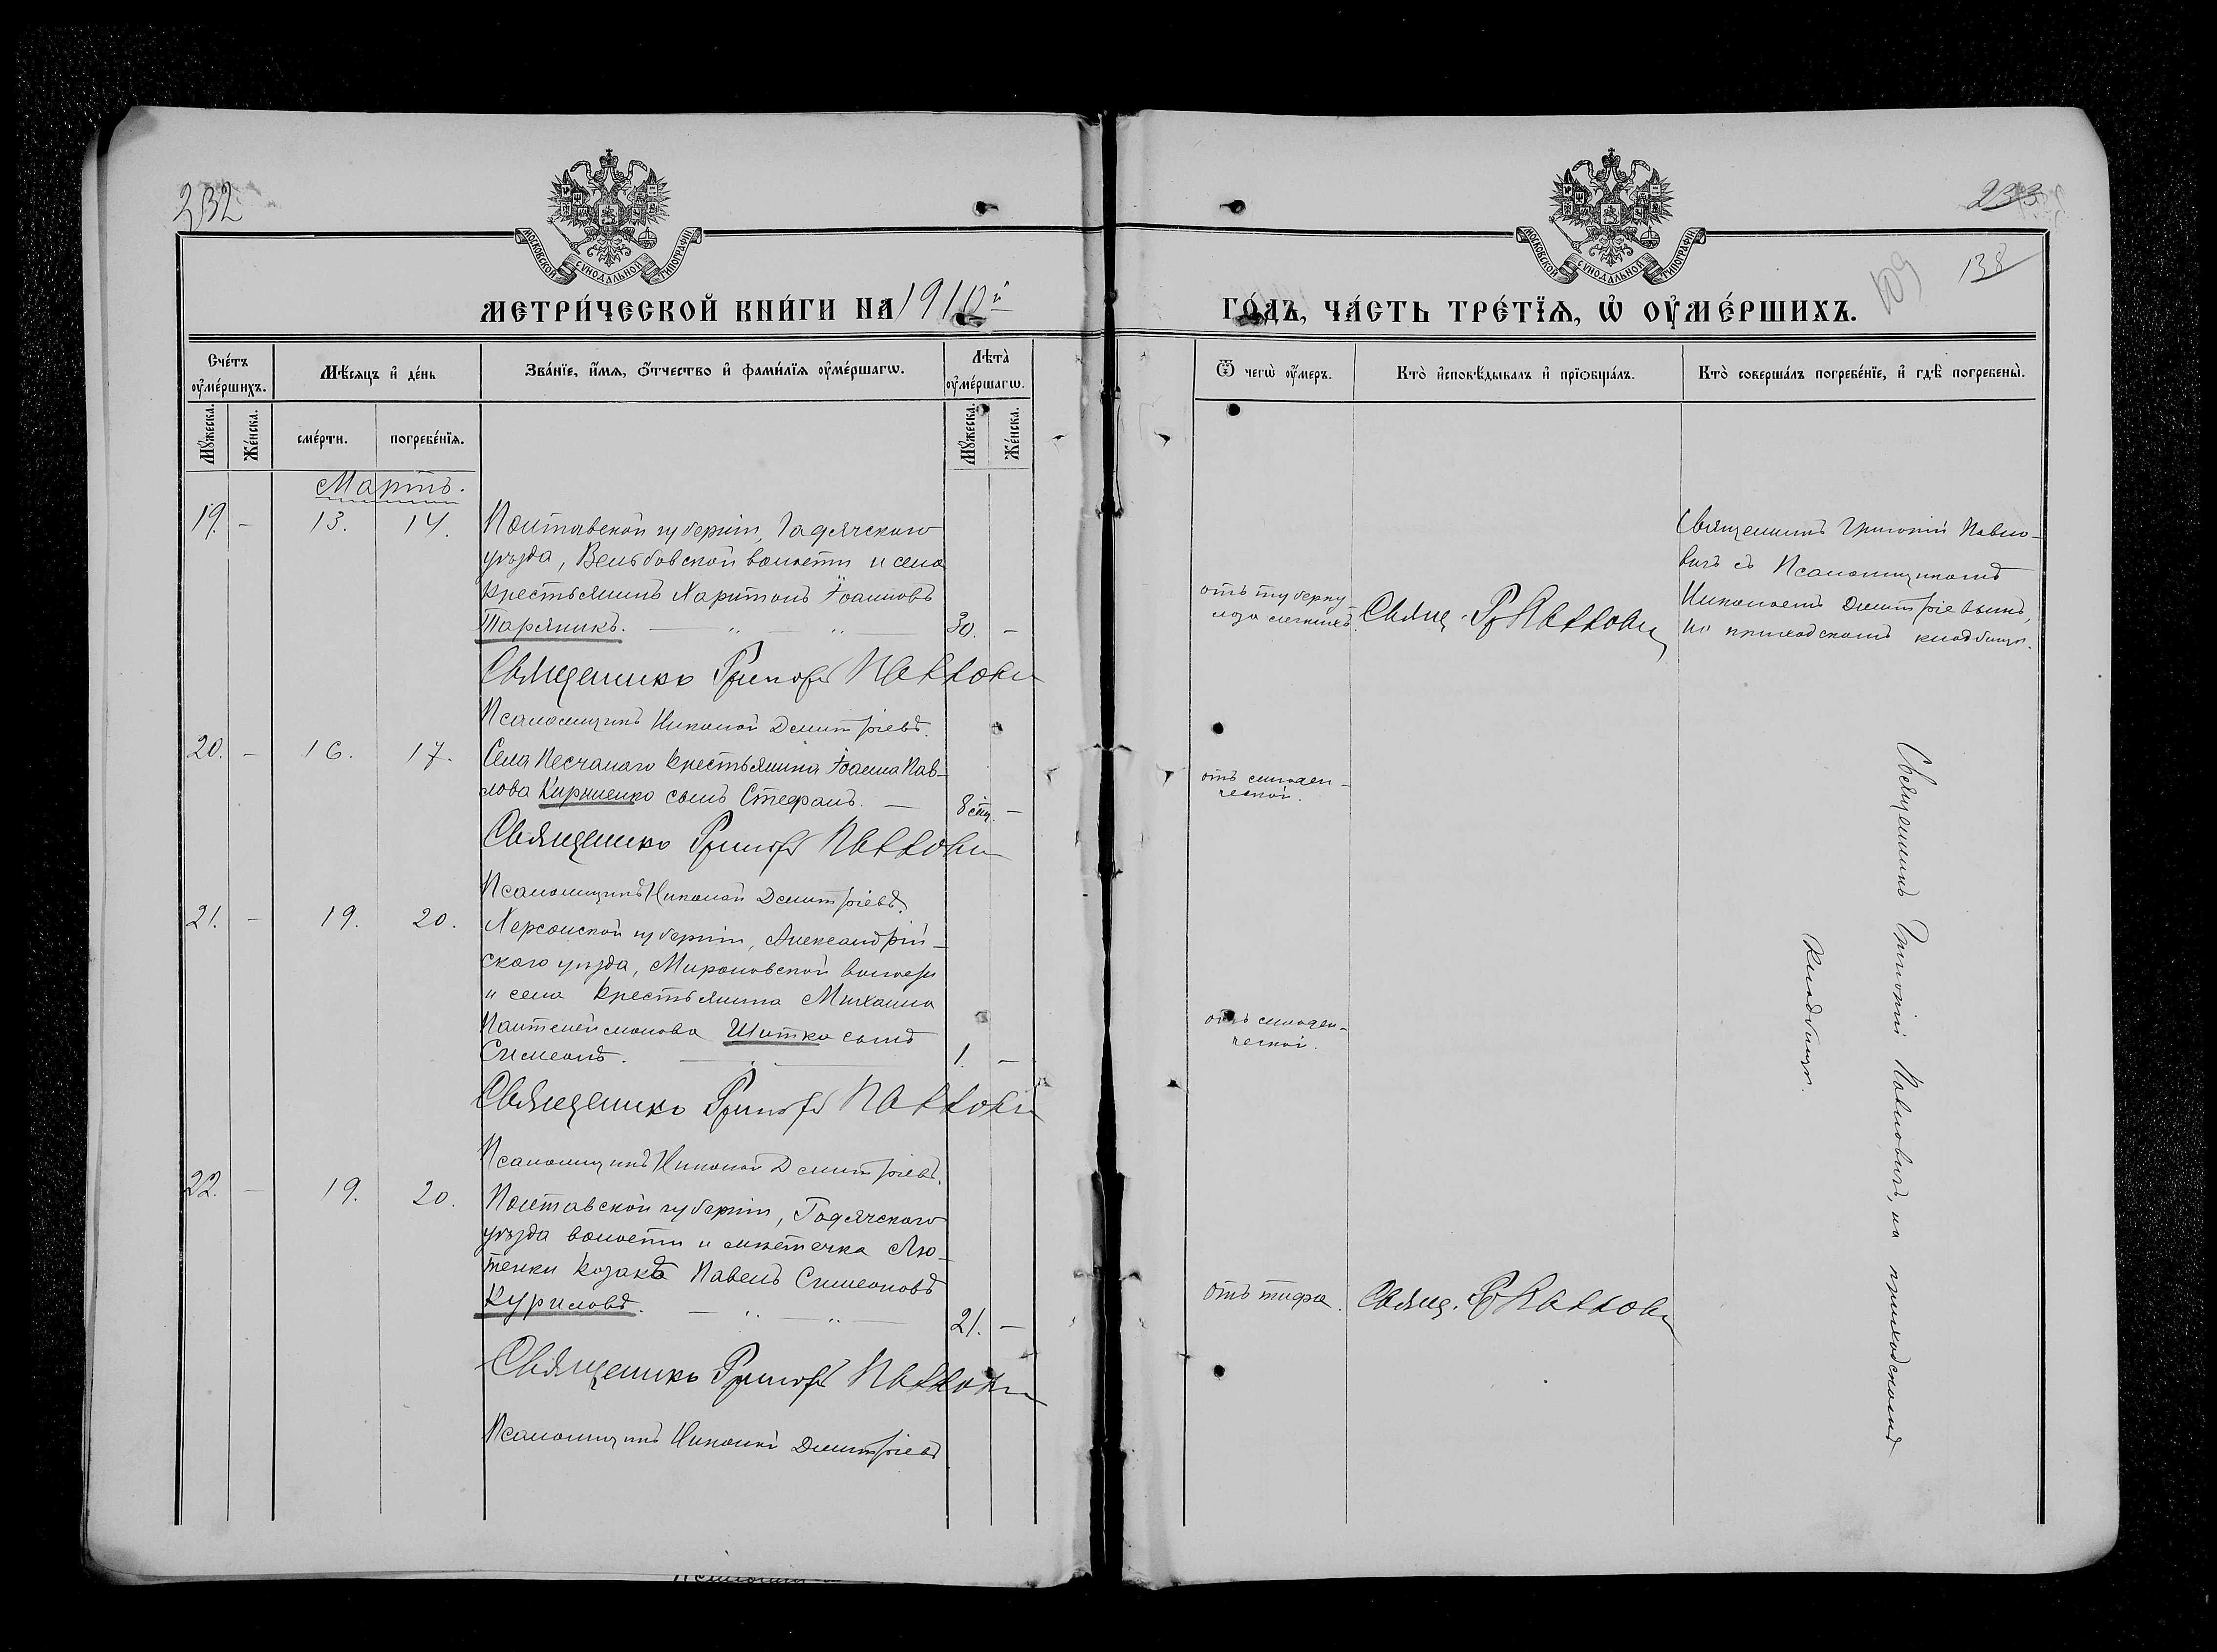 232
МОСКОВСКОЙ СѴНОДАЛЬНОЙ ТИПОГРАФІИ
МЕТРИ́ЧЕСКОЙ КНИ́ГИ НА 1910й
Сче́тъ оу҆ме́ршихъ.
Мѣ́сяцъ и҆ де́нь
Зва́нїе, и҆́мѧ, ѻ҆́тчество и҆ фами́лїѧ оу҆ме́ршагѡ.
Лѣта̀ оу҆ме́ршагѡ.
Мꙋ́жеска.
Же́нска.
сме́рти.
погребе́нїѧ.
Мꙋ́жеска.
Же́нска.
Мартъ.
19. - 13. 14. Полтавской губерніи, Гадячскаго
уѣзда, Вельбовской волости и села
крестьянинъ Харитонъ Іоанновъ
Таряникъ. 30. -
Священникъ Григорій Павлович
Псаломщикъ Николай Димитріевъ.
20. - 16. 17. Села Песчанаго крестьянина Іоанна Пав-
лова Кириченко сынъ Стефанъ. - 8 -
Священникъ Григорій Павлович
Псаломщикъ Николай Димитріевъ.
21. - 19. 20. Херсонской губерніи, Александрій-
скаго уѣзда, Мироновской волости
и села крестьянина Михаила
Пантелеймонова Шитко сынъ
Симеонъ. 1. -
Священникъ Григорій Павлович
Псаломщикъ Николай Димитріевъ.
22. - 19. 20. Полтавской губерніи, Гадячскаго
уѣзда волости и мѣстечка Лю-
теньки козакъ Павелъ Симеоновъ
Куриловъ. 21. -
Священникъ Григорій Павлович
Псаломщикъ Николай Димитріевъ
233
138
МОСКОВСКОЙ СѴНОДАЛЬНОЙ ТИПОГРАФІИ
ГО́ДЪ, ЧА́СТЬ ТРЕ́ТЇѦ, Ѡ҆ ОУ҆МЕ́РШИХЪ.
Ѿ чегѡ̀ оу҆́меръ.
Кто̀ и҆сповѣ́дывалъ и҆ прїѡбща́лъ.
Кто̀ соверша́лъ погребе́нїе, и҆ гдѣ̀ погребены̀.
отъ туберку-
леза легкихъ.
Свящ. Гр Павлович
Священникъ Григорій Павло-
вичъ съ Псаломщикомъ
Николаемъ Димитріевымъ,
на приходскомъ кладбищѣ.
отъ младен-
ческой.
отъ младен-
ческой.
отъ тифа.
Свящ. Гр Павлович
Священникъ Григорій Павловичъ, на приходскомъ
кладбищѣ.